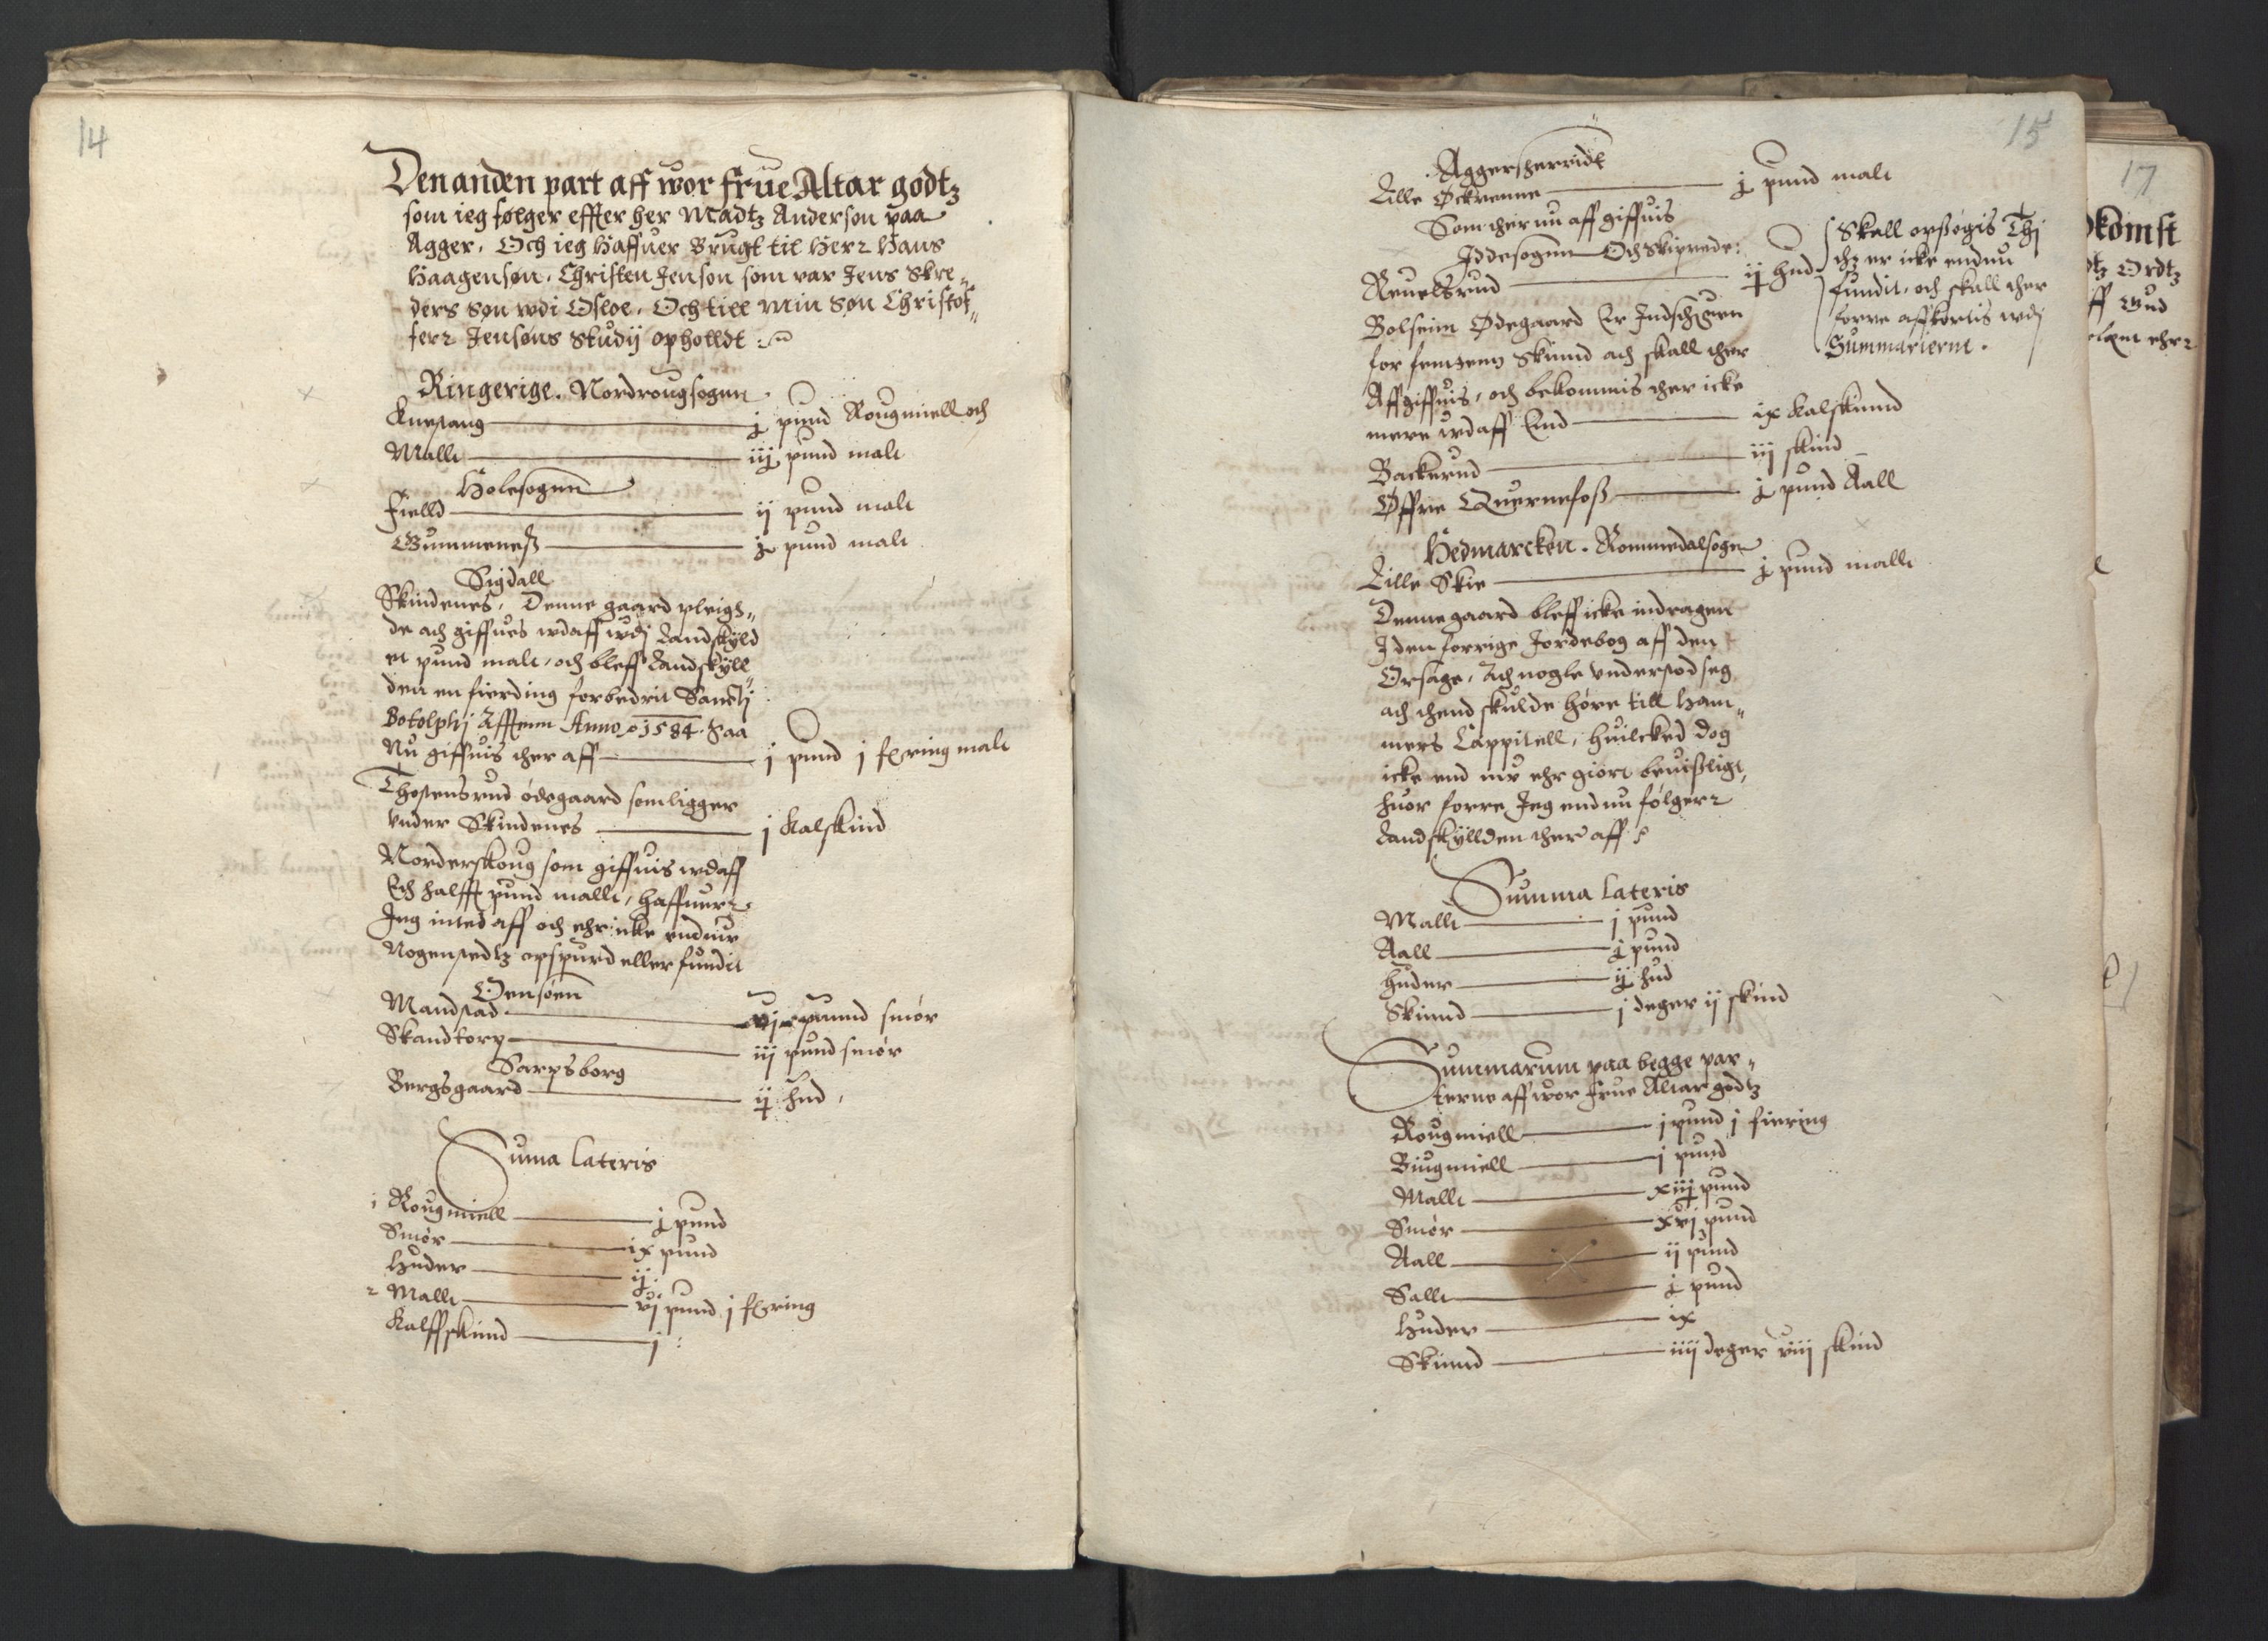 14
Den anden part aff wor frue Altar godtz
som ieg følger effter her Madtz Anderson paa
Agger. Och ieg Haffuer Brugt til Herr Hans
Haagensøn. Christen Jenson som var Jens Skre„
ders Søn wdi Osloe. Och till min Søn Christof„
ferr Jensøns Studij opholldt
Ringerige. Nordrougsogun
Knestang j pund Rougmiell och
Mallt iij pund malt
Holesogunn
Fielld ij pund malt
Gummeneß j pund malt
Sigdall
Skindenes. Denne gaard pleigs„
de ach giffues wdaff wdj Landskyld
et pund malt, och bleff Landskyll„
den en fierding forbedrit Sanctj
Botolphj Afftenn Anno 1584. Saa
Nu giffuis ther aff j pund j fering malt
Thostensrud ødegaard som ligger
vnder Skindenes j Kalskind
Norderskoug som giffuis wdaff
Ech halfft pund mallt, haffuerr
Jeg inted aff och ehr icke endnu
Nogenstedtz opspurd eller fundit
Oensøen
Mandstad vj pund smør
Skandtorp iij pund smør
Sarpsborg
Bergsgaard ij hud
Suma Lateris
1 Rougmiell j pund
Smør ix pund
Huder ij
2 Mallt vj pund j fering
Kalffskind j
15
Aggersherridt
Lille Øckrenne j pund malt
Som ther nu aff giffuis
Iddesogunn Och Skiprede:
Reuelsrud ij hud
Skall opsøgis Thj
thz er icke endnu
fundit, och skall ther
forre affkortis wdj
Summarierne.
Bolseim Ødegaard Er Indschreuen
for femten Skiind ach skall ther
Affgiffuis, och bekommis ther icke
mere wdaff End ix Kalskiind
Backerud iij skind
Øffre Quernefoß j pund Aall
Hedmarcken. Rommedalsogn
Lille Skie j pund mallt
Denne gaard bleff icke indragen
I den forrige Jordebog aff den
Orsage, Ach nogle vnderstod seg
ach thend skulde høre till Ham„
mers Cappitell, huilcked dog
icke end nu ehr giort beuißligt,
huor forre Jeg endnu følgerr
Landskyllden ther aff
Summa Lateris
Mallt j pund
Aall j pund
Huder ij hud
Skiind j deger ij skind
Summarum paa begge par„
terne aff wor frue Altar godtz
Rougmiell j pund j fiering
Biugmiell j pund
Mallt xiij pund
Smør xvj pund
Aall ij pund
Sallt j pund
Huder ix
Skiind iiij deger viij skind
17
dkomst
tz Ordtz
ff Gud